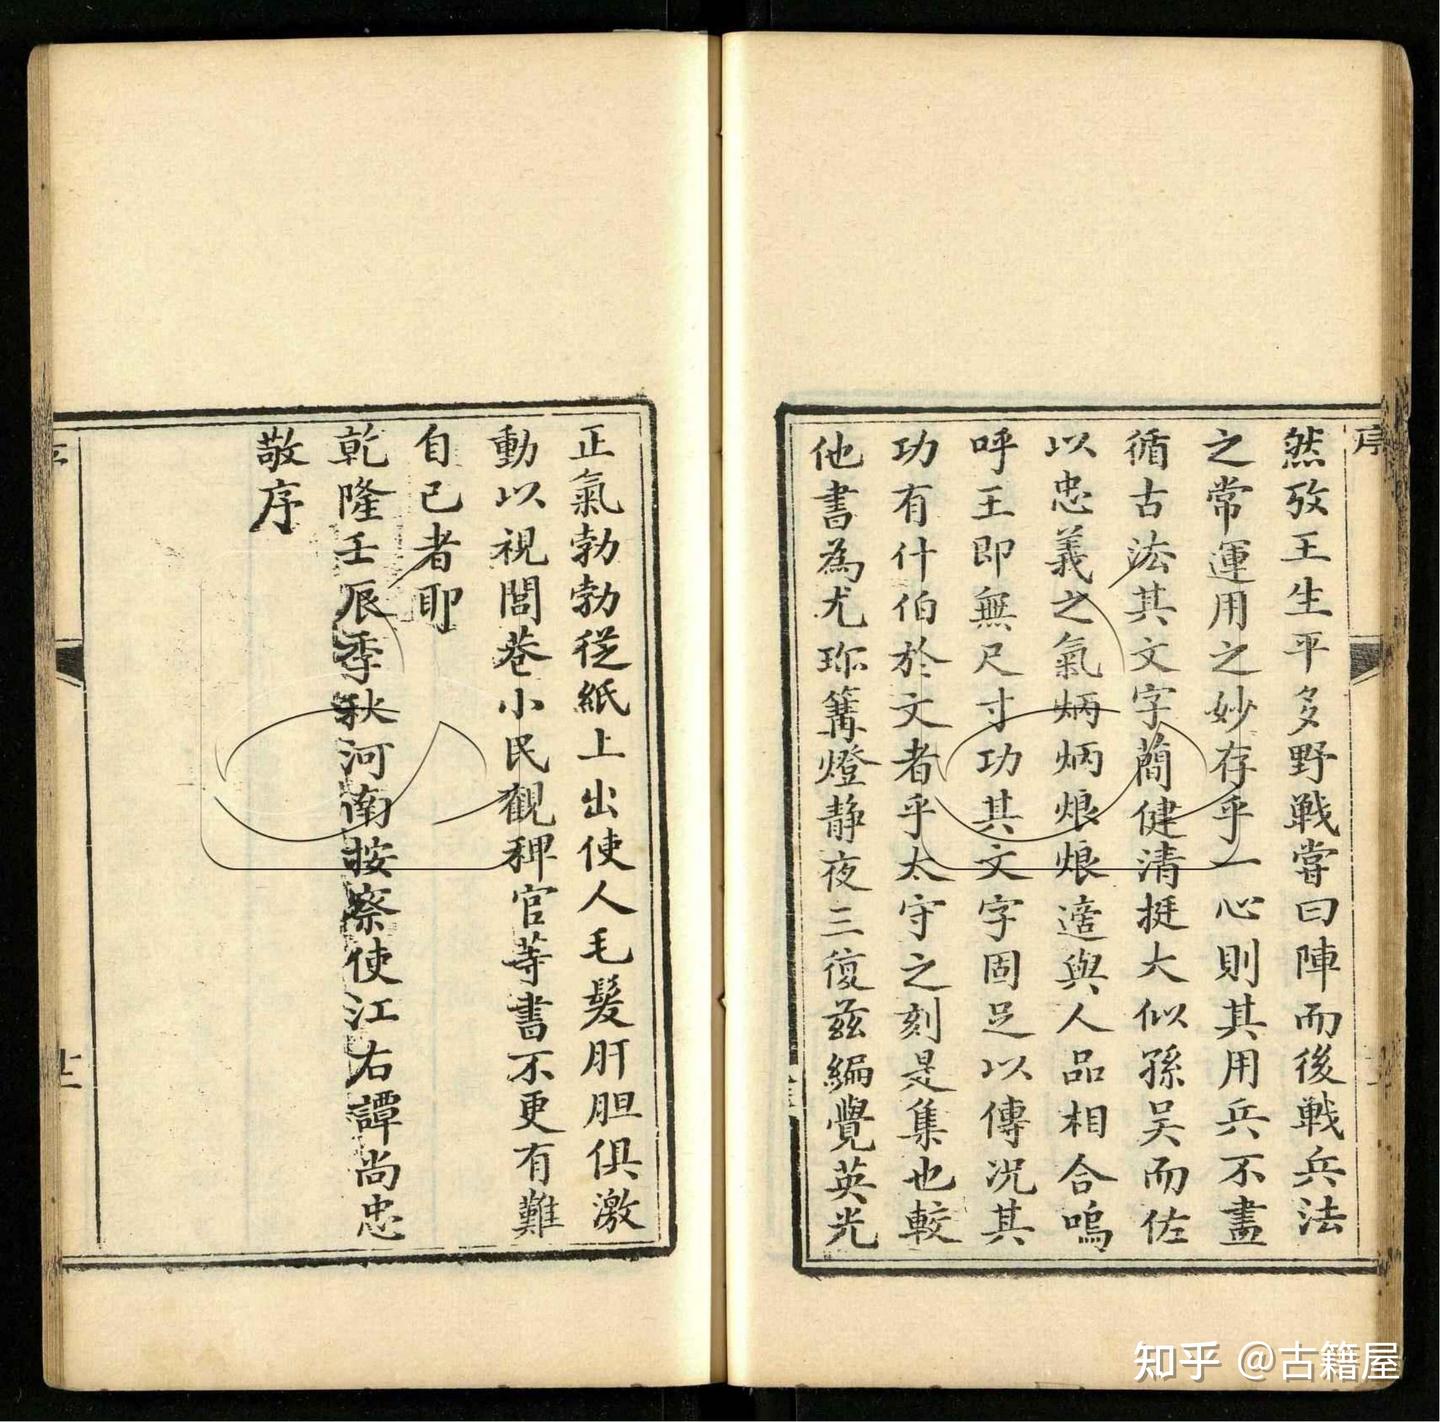 然攷王生平多野戰嘗曰陣而後戰兵法
之常運用之妙存乎一心則其用兵不盡
循古法其文字簡健清挺大似孫吴而佐
以忠義之氣炳炳烺烺適與人品相合嗚
呼王即無尺寸功其文字固足以傳况其
功有什伯於文者乎太守之刻是集也較
他書為尤珎篝燈静夜三復兹編覺英光
正氣勃勃從紙上出使人毛髮肝胆俱激
動以視閭巷小民觀稗官等書不更有難
自已者耶
乾隆壬辰季秋河南按察使江右譚尚忠
敬序
序
知乎 @古籍屋